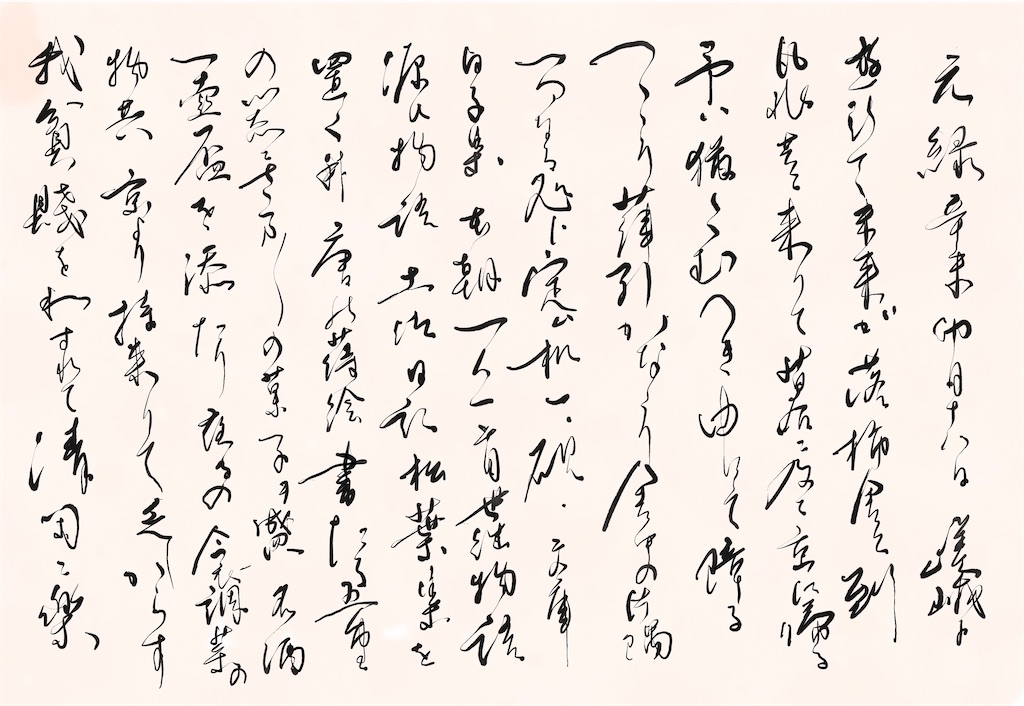 元禄辛未卯月十八日 嵯峨ニ
遊びて去来が落柿舎に到
凡兆共ニ来りて暮ニ及て京ニ帰る
予ハ猶とゝむへき由にて障子
つゝくり葎引かなくり舎中の片隅
一間なる処伏処ト定ム机一、硯、文庫
白氏集 本朝一人一首 世継物語
源氏物語 土佐日記 松葉集を
置く并唐の蒔絵書たる五重
の器にさま〴〵の菓子ヲ盛 名酒
一壺盃を添たり夜るの衾調菜の
物共京より持来りて乏しからす
我貧賤をわすれて清閑ニ楽ム